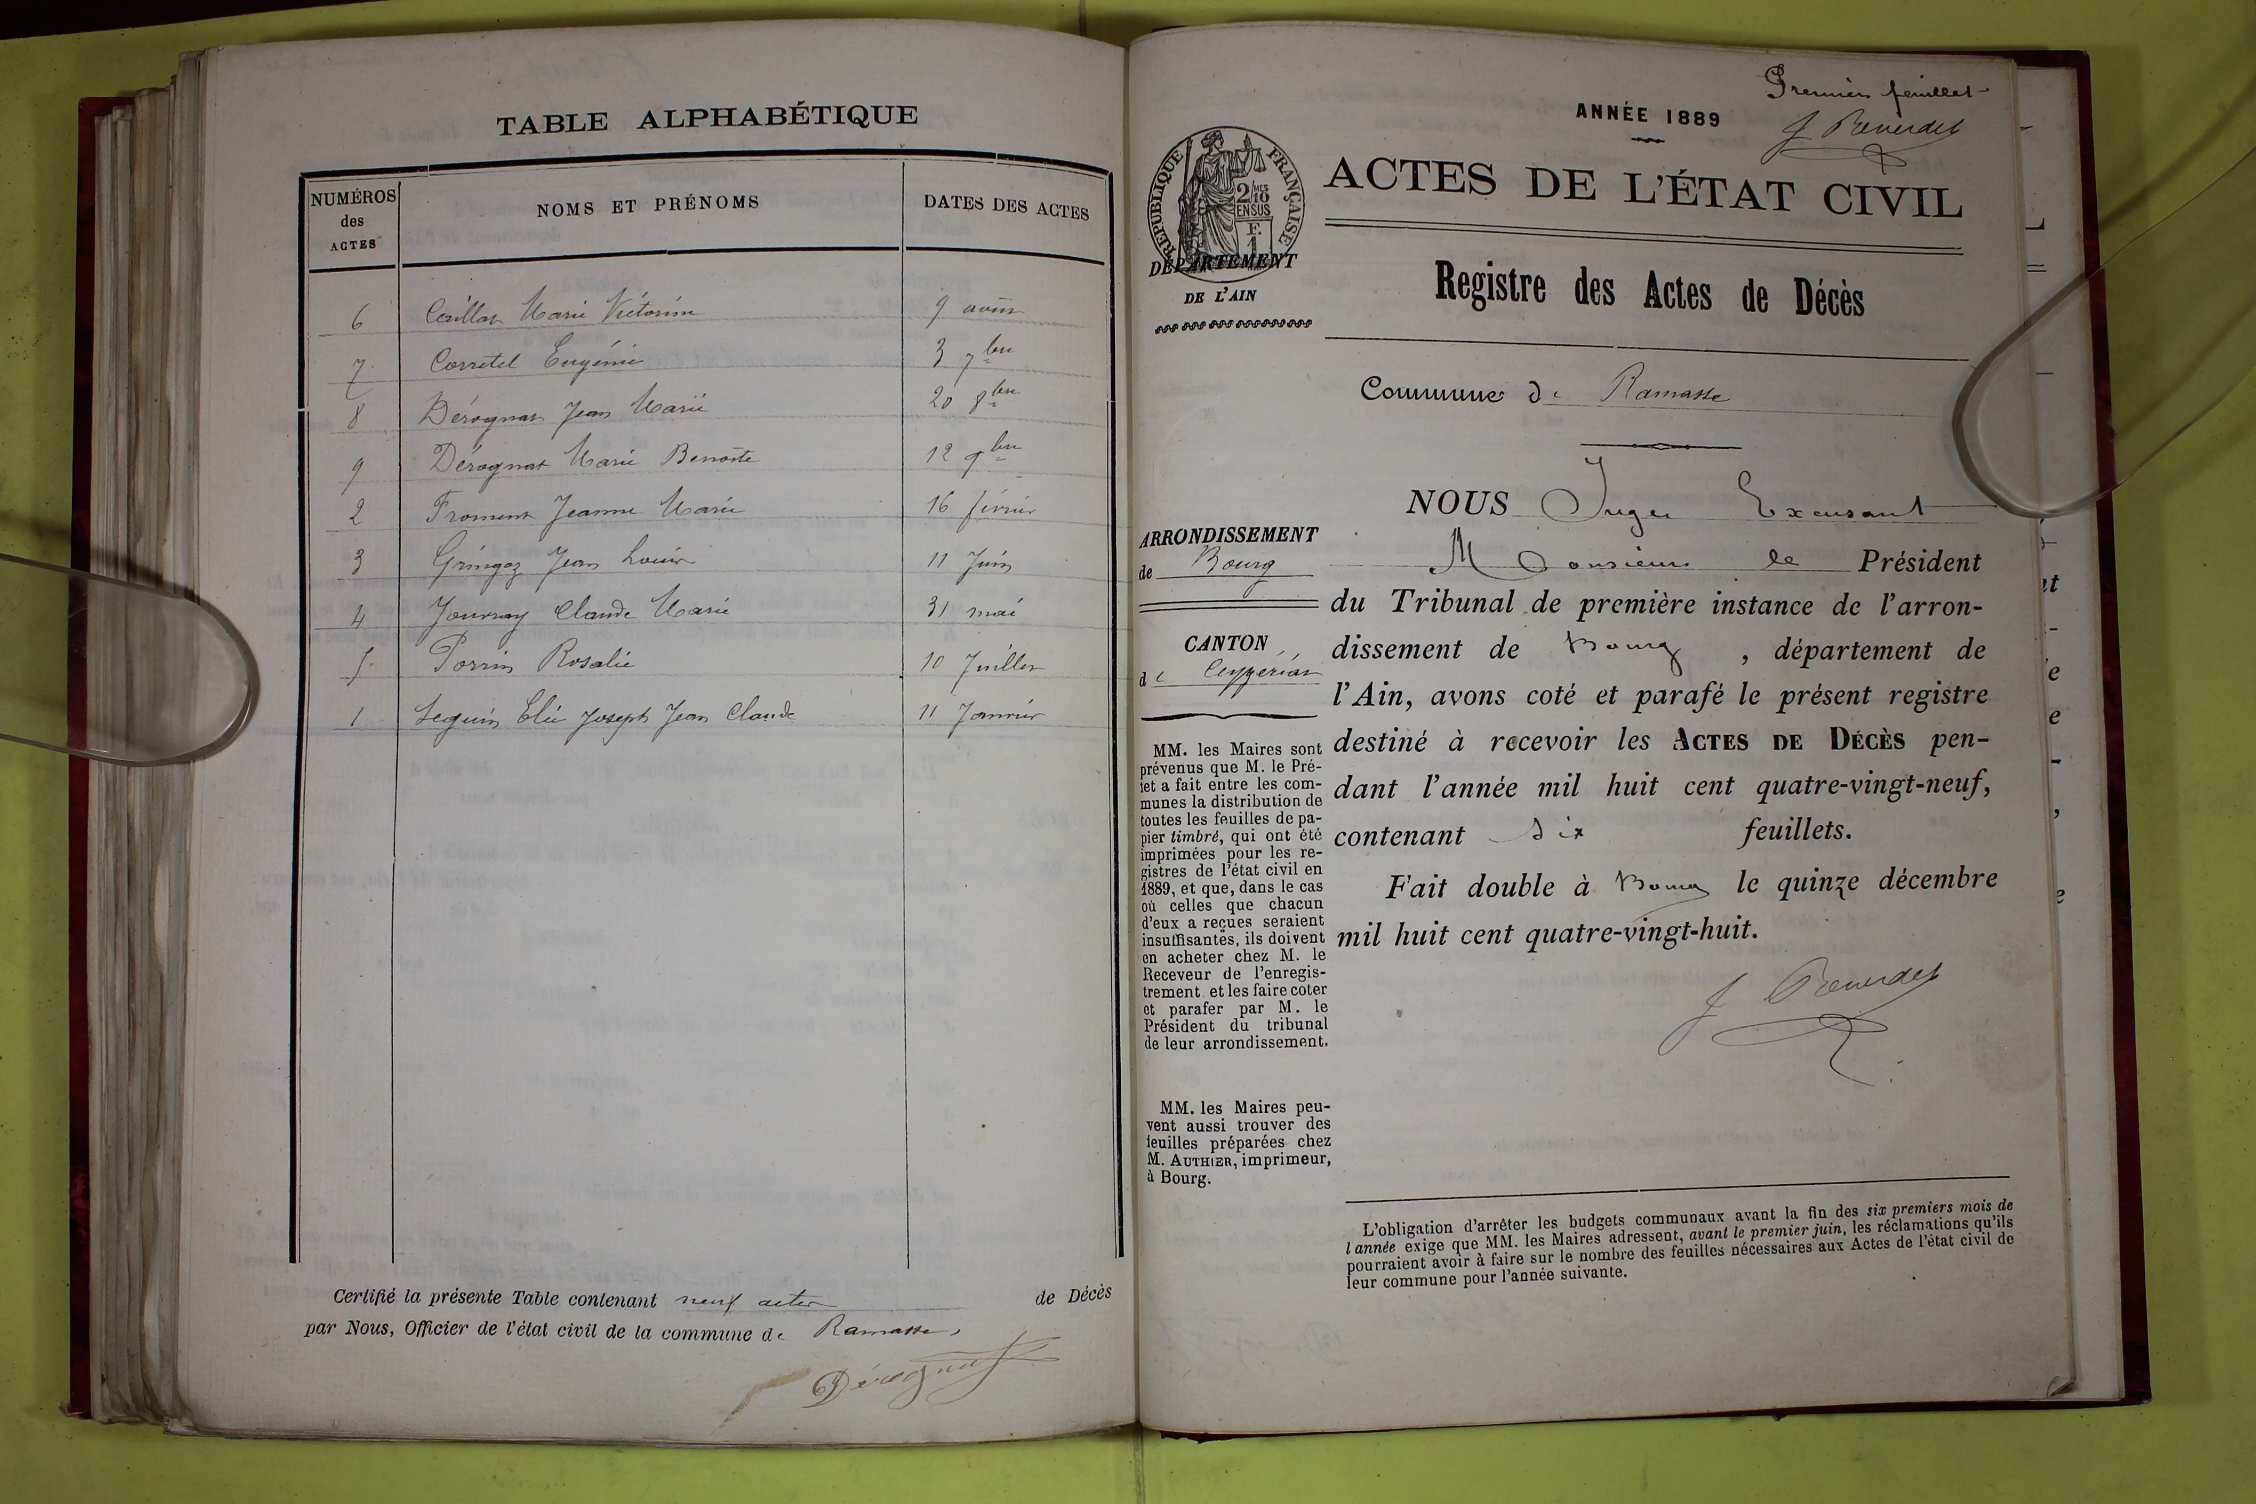 TABLE ALPHABÉTIQUE
NUMÉROS des ACTES
NOMS ET PRÉNOMS
DATES DES ACTES
6 Cuillat Marie Victorine 9 août
7 Corretel Eugénie 3 7bre
8 Dérognat Jean Marie 20 8bre
9 Dérognat Marie Benoîte 12 9bre
2 Froment Jeanne Marie 16 février
3 Gringoz Jean Louis 11 Juin
4 Jouvray Claude Marie 31 mai
5 Perrin Rosalie 10 Juillet
1 Seguin Elie Joseph Jean Claude 11 Janvier
Certifié la présente Table contenant neuf actes de Décès
par Nous, Officier de l'état civil de la commune de Ramasse.
Dérognat
Premier feuillet
J Reverdet
ANNÉE 1889
ACTES DE L'ÉTAT CIVIL
RÉPUBLIQUE FRANÇAISE
2/10 MES
EN SUS
F.
1
DÉPARTEMENT
DE L'AIN
Registre des Actes de Décès
Commune de Ramasse
ARRONDISSEMENT
de Bourg
CANTON
de Ceyzériat
MM. les Maires sont
prévenus que M. le Pré-
fet a fait entre les com-
munes la distribution de
toutes les feuilles de pa-
pier timbré, qui ont été
imprimées pour les re-
gistres de l'état civil en
1889, et que, dans le cas
où celles que chacun
d'eux a reçues seraient
insuffisantes, ils doivent
en acheter chez M. le
Receveur de l'enregis-
trement et les faire coter
et parafer par M. le
Président du tribunal
de leur arrondissement.
MM. les Maires peu-
vent aussi trouver des
feuilles préparées chez
M. AUTHIER, imprimeur,
à Bourg.
NOUS Juge Excusant
Monsieur le Président
du Tribunal de première instance de l'arron-
dissement de Bourg, département de
l'Ain, avons coté et parafé le présent registre
destiné à recevoir les ACTES DE DÉCÈS pen-
dant l'année mil huit cent quatre-vingt-neuf,
contenant six feuillets.
Fait double à Bourg le quinze décembre
mil huit cent quatre-vingt-huit.
J Reverdet
L'obligation d'arrêter les budgets communaux avant la fin des six premiers mois de
l'année exige que MM. les Maires adressent, avant le premier juin, les réclamations qu'ils
pourraient avoir à faire sur le nombre des feuilles nécessaires aux Actes de l'état civil de
leur commune pour l'année suivante.